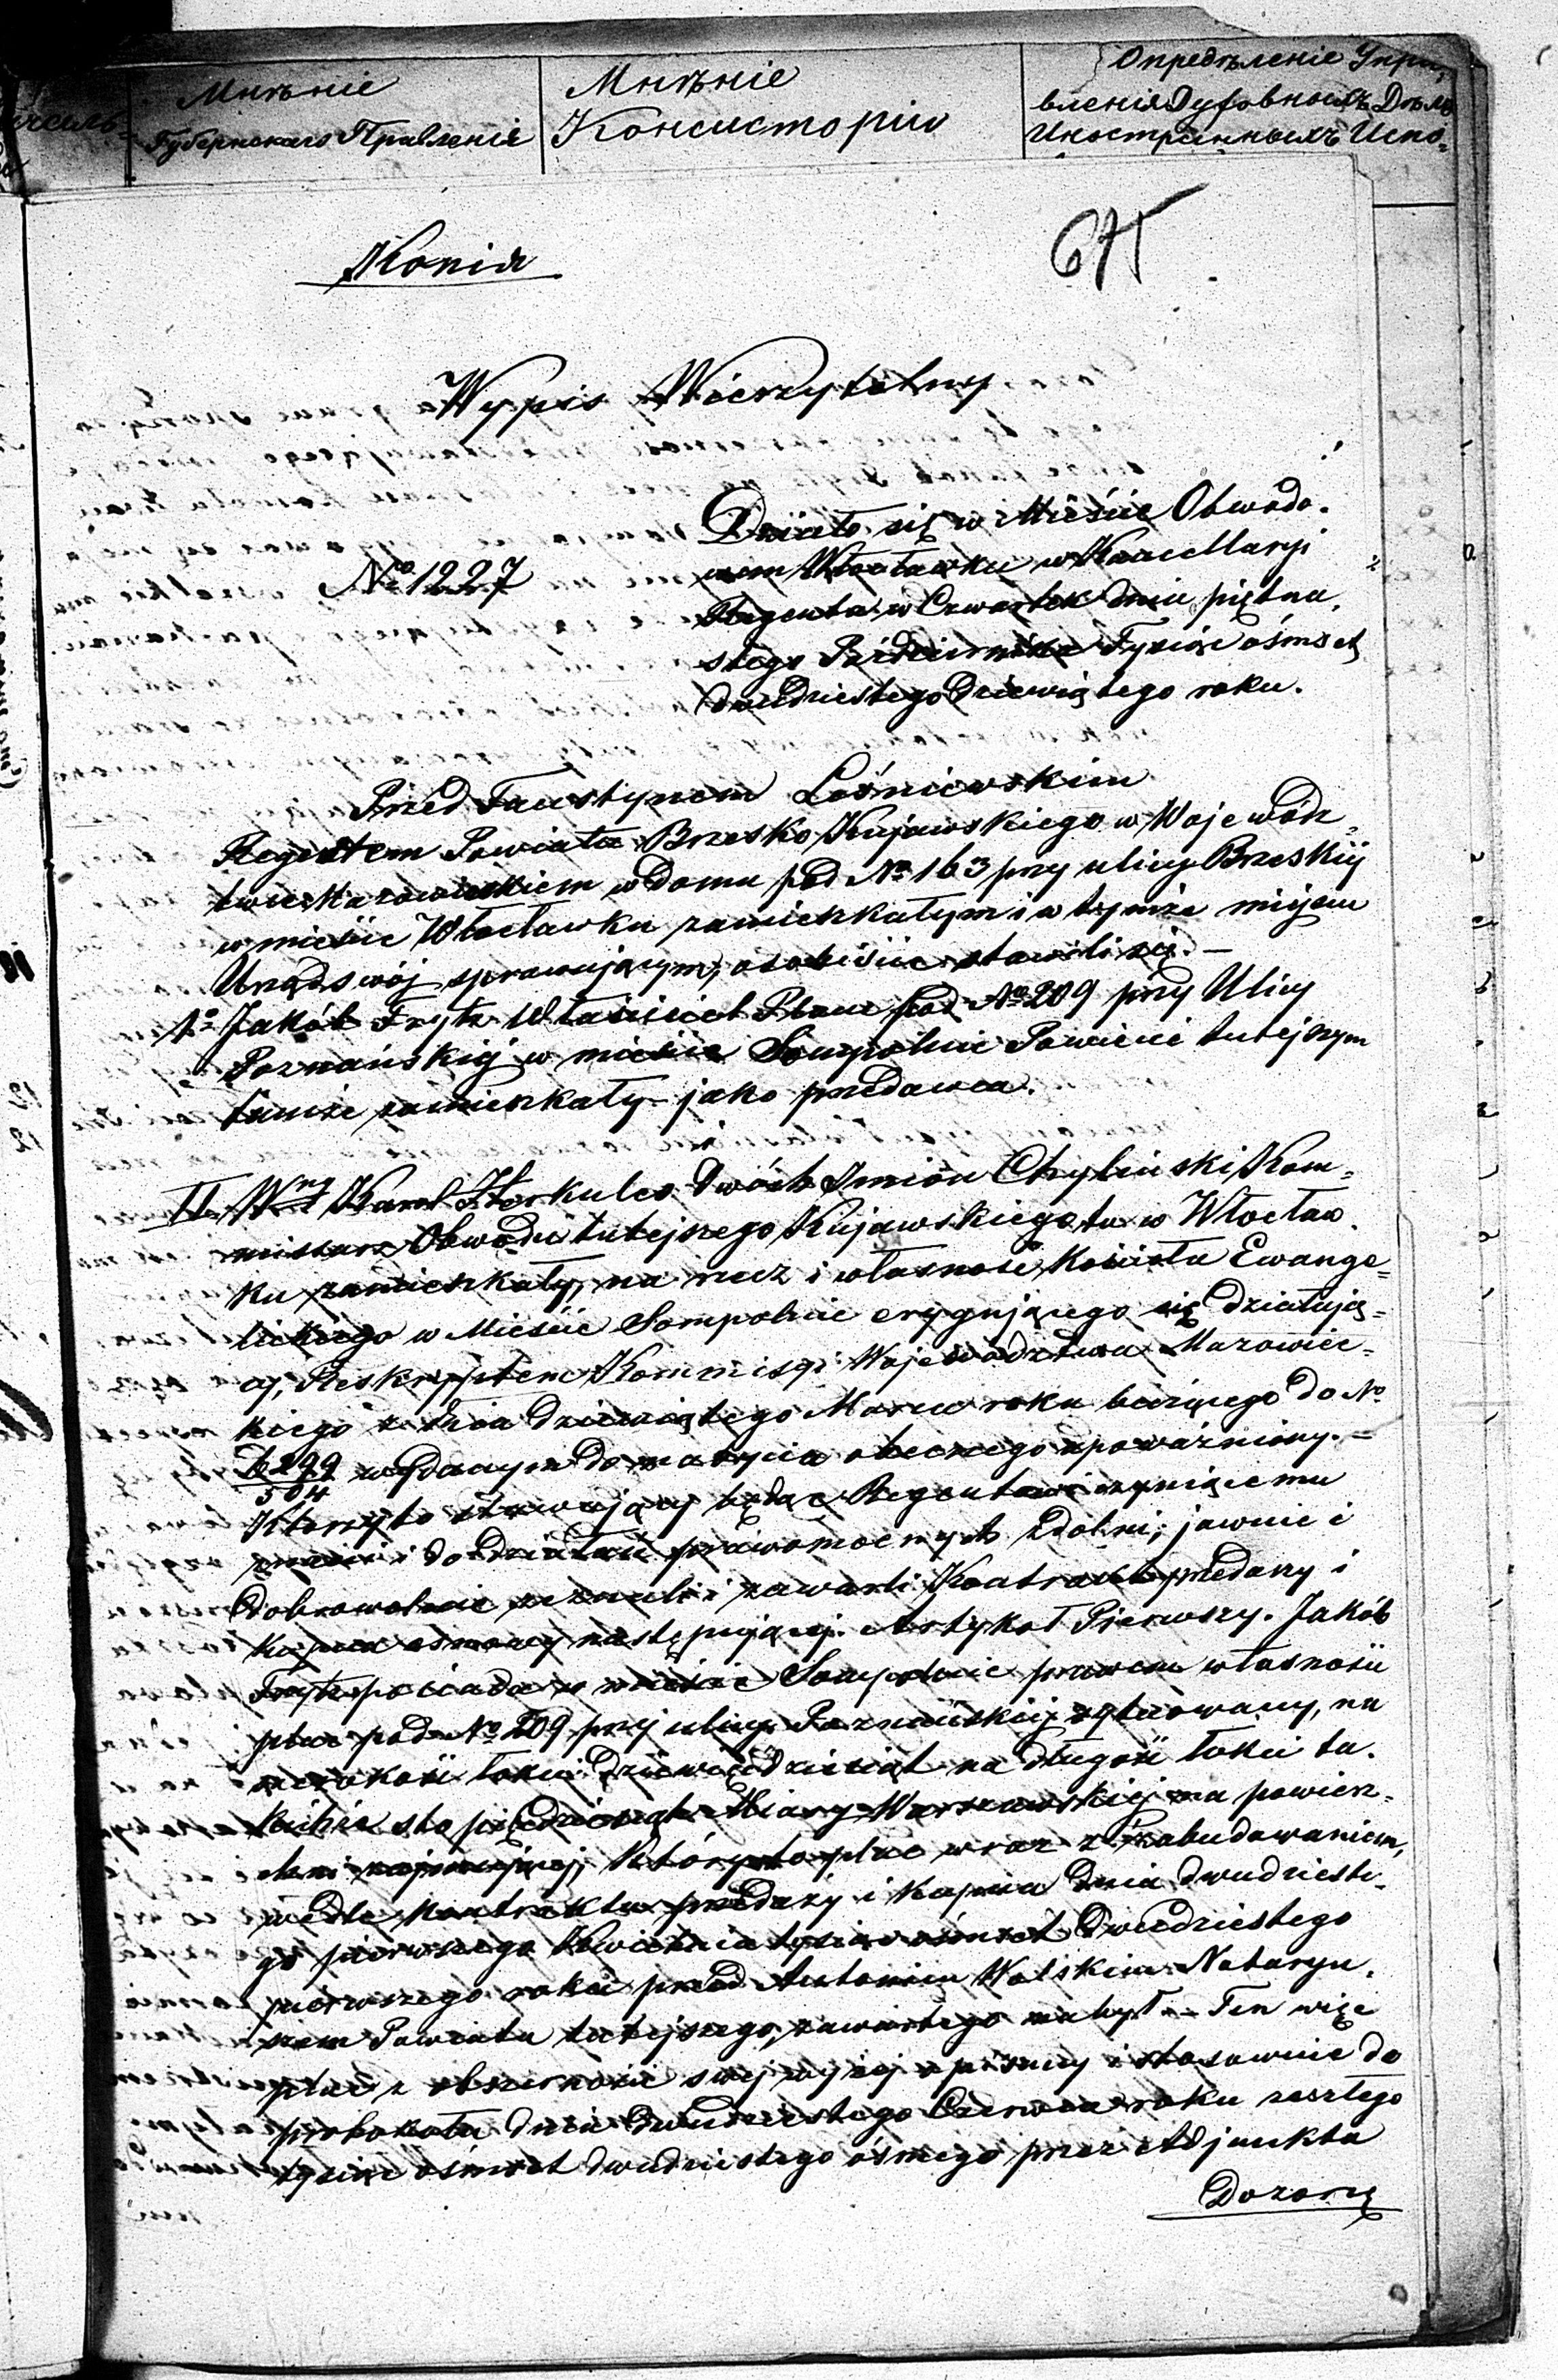 Мнѣніе
Губернскаго Правленія
Мнѣніе
Консисторіи
Опредѣленіе Упра-
вленія Духовныхъ Дѣлъ
Иностранныхъ Испо-
Kopia
675
Wypis Wierzytelny
No 1227
Działo się w Mieście Obwodo-
wem Włocławku w Kancellaryi
Regenta w Czwartek dnia piętna-
stego Października Tysiąc ośmset
dwudziestego dziewiątego roku.
Przed Faustynem Leśniewskim
Regentem Powiatu Brzesko Kujawskiego w Wojewódz-
twie Mazowieckiem w domu pod No 163 przy ulicy Brzeskiij
w mieście Włocławku zamieszkałym i w tymże miejscu
Urząd swój sprawującym, osobiście stawili się. —
1o Jakób Frytz Właściciel Placu pod No 209 przy Ulicy
Poznańskiej w mieście Sompolnie Powiecie tutejszym
tamże zamieszkały jako przedawca.
i
II. Wny Karol Herkules dwóch Imion Chyliński Kom-
missarz Obwodu tutejszego Kujawskiego tu w Włocław-
ku zamieszkały, na rzecz i własność Kościoła Ewange-
lickiego w Mieście Sompolnie erygującego się działają-
cy, Reskryptem Kommisyi Województwa Mazowiec-
kiego z dnia dziewiątego Marca roku bieżącego do No
299/504 wydanym do nabycia obecnego upoważniony. —
Którzyto stawający będąc Regentowi czyniącemu
znani i do działań prawomocnych zdolni, jawnie i
dobrowolnie zeznali i zawarli Kontrakt przedaży i
kupna osnowy następującej. Artykuł Pierwszy. Jakób
Frytz posiada w mieście Sompolnie prawem własności
plac pod No 209 przy ulicy Poznańskiej sytuowany, na
szerokość łokci dziewięćdziesiąt na długość łokci ta-
kichże sto pięćdziesiąt Miary Warszawskiej na powierz-
chni zajmujący, którento plac wraz z zabudowaniem,
wedle kontraktu przedaży i kupna dnia dwudzieste-
go pierwszego Kwietnia tysiąc ośmset dwudziestego
pierwszego roku przed Antonim Wolskim Notaryu-
szem Powiatu tutejszego, zawartego nabył. — Ten więc
plac z obszerności swej wyżej opisany i stosownie do
protokołu dnia dwudziestego Czerwca roku zeszłego
tysiąc ośmset dwudziestego ósmego przez Adjunkta
Dozoru